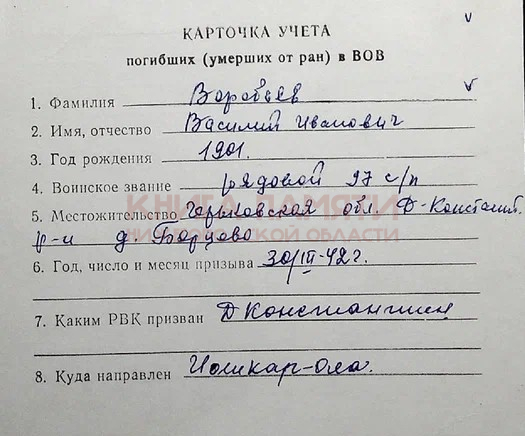 КАРТОЧКА УЧЕТА
погибших (умерших от ран) в ВОВ
1. Фамилия Воробьев
2. Имя, отчество Василий Иванович
3. Год рождения 1901.
4. Воинское звание рядовой 97 с/п
КНИГА ПАМЯТИ
5. Местожительство Горьковская обл. Д-Констант.
НИЖЕГОРОДСКОЙ ОБЛАСТИ
р-н д. Борцово
6. Год, число и месяц призыва 30/III-42 г.
7. Каким РВК призван Д Константин
8. Куда направлен Йошкар-Ола.